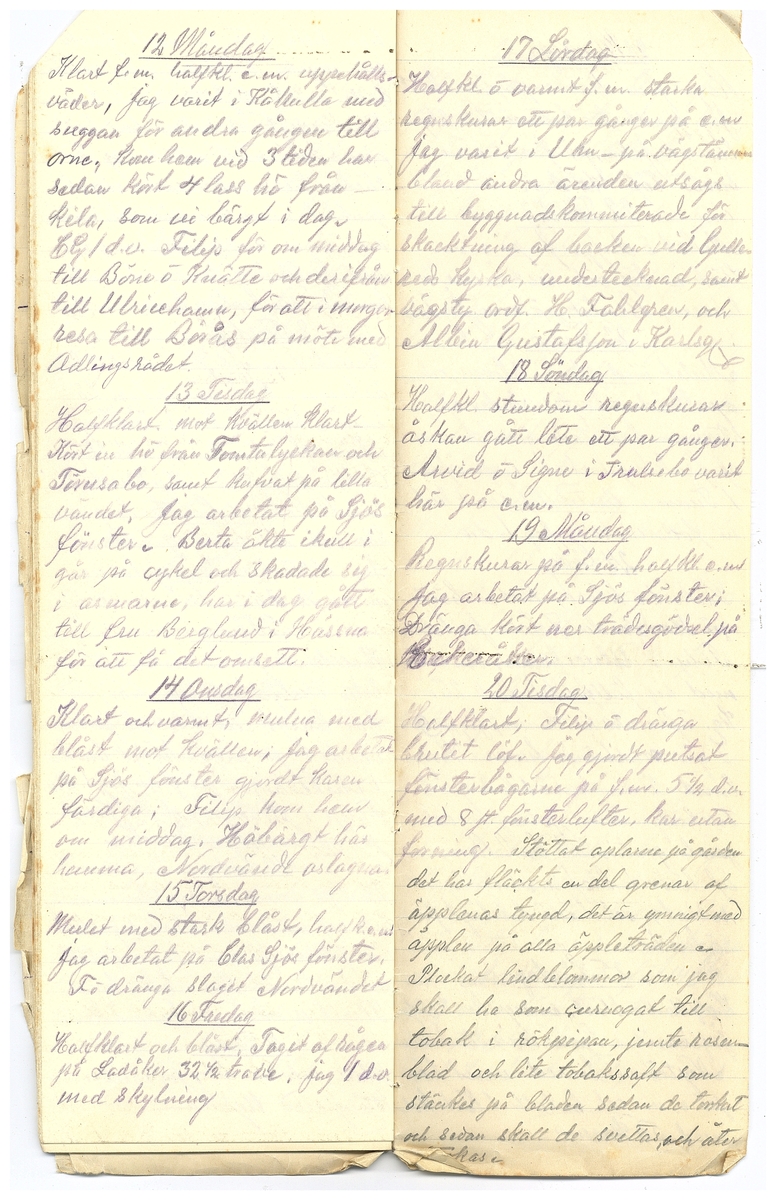 12 Måndag
Klart f.m. halfkl. e.m. uppehålls-
väder, jag varit i Kåkulla med
suggan för andra gången till
orne, kom hem vid 3 tiden har
sedan kört 4 lass hö från
kila, som vi bärgt i dag.
1 d.v. Filip för om middag
till Böne ö Knätte och derifrån
till Ulricehamn, för att i morgon
resa till Borås på möte med
Odlingsrådet.
13 Tisdag
Halfklart mot kvällen klart
Kört in hö från Tomtalyckan och
Törnsabo, samt kufvat på lilla
vändet, jag arbetat på Sjös
fönster. Berta åkte ikull i
går på cykel och skadade sig
i armarne, har i dag gått
till fru Berglund i Hässna
för att få det omsett.
14 Onsdag
Klart och varmt, mulna med
blåst mot kvällen; jag arbetat
på Sjös fönster gjordt karm
färdiga; Filip kom hem
om middag. Höbärgt här
hemma, Nordvändt
15 Torsdag
Mulet med stark blåst, halfk e.m
jag arbetat på Clas Sjös fönster.
Fö dränga slaget Nordvändet
16 Fredag
Halfklart och blåst, Taget af rågen
på Ladåker 32 1/2 trafve, jag 1 d.v.
med skylning
17 Lördag
Halfkl. ö varmt f.m. starka
regnskurar ett par gånger på e.m
jag varit i Uhn på vägstämma
bland andra ärenden utsågs
till byggnadskommiterade för
skacktning af backen vid Gullered
kyrka, undertecknad, samt
vägsty ordf. H. Fahlgren, och
Albin Gustafsson i Karlsg
18 Söndag
Halfkl. stundom regnskurar
åskan gått lite ett par gånger.
Arvid ö Signe i Trulsebo varit
här på e.m.
19 Måndag
Regnskurar på f.m halfkl e.m
jag arbetat på Sjös fönster;
Dränga kört mer trädesgödsel på
20 Tisdag
Halfklart; Filip ö dränga
brutet löf. Jag gjordt putsat
fönsterbågarne på f.m. 5 1/2 d.v.
med 8 st fönsterlufter, kar utan
forning. Stöttat aplarne på gården
det har fläckts en del grenar af
äpplenas tyngd, det är ymnigt med
äpplen på alla äppleträden
Plockat lindblommor som jag
skall ha som surrogat till
tobak i rökpipan, jemte rosen-
blad och lite tobakssaft som
stänkes på bladen sedan de torkat
och sedan skall de svettas, och åter